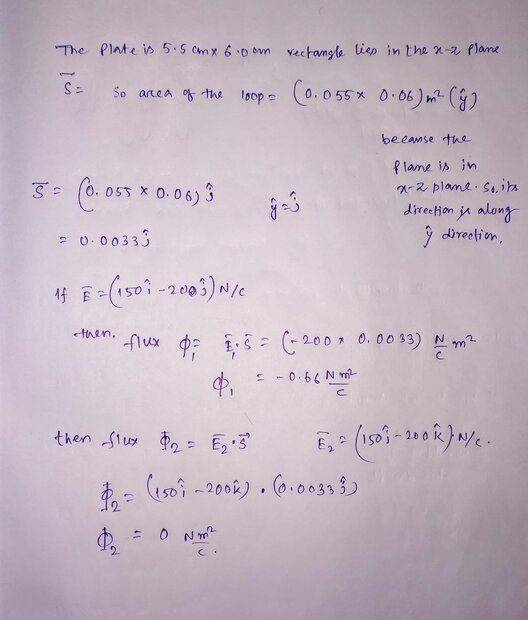 The Plate is 5.5 cm x 6.0 cm rectangle lies in the x-z plane
S⃗ = So area of the loop = (0.055 x 0.06) m² (ŷ)
because the
plane is in
x-z plane. So, its
direction is along
ŷ direction.
S̄ = (0.055 x 0.06) ĵ ŷ = ĵ
= 0.0033 ĵ
If Ē = (150 î - 200 ĵ) N/C
then, flux ϕ₁ = Ē₁.S̄ = (-200 x 0.0033) N/C m²
ϕ₁ = -0.66 N m²/C
then flux Φ₂ = Ē₂.S⃗ Ē₂ = (150 î - 200 k̂) N/C.
Φ₂ = (150 î - 200 k̂) . (0.0033 ĵ)
Φ₂ = 0 N m²/C.